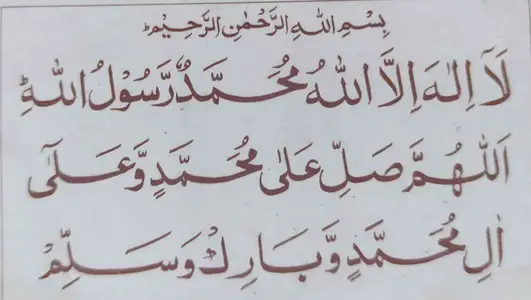 بِسْمِ اللهِ الرَّحْمٰنِ الرَّحِيْمِ
لَآ اِلٰهَ اِلَّا اللهُ مُحَمَّدٌ رَّسُوْلُ اللهِ
اَللّٰهُمَّ صَلِّ عَلٰى مُحَمَّدٍ وَّعَلٰٓى
اٰلِ مُحَمَّدٍ وَّبَارِكْ وَسَلِّمْ